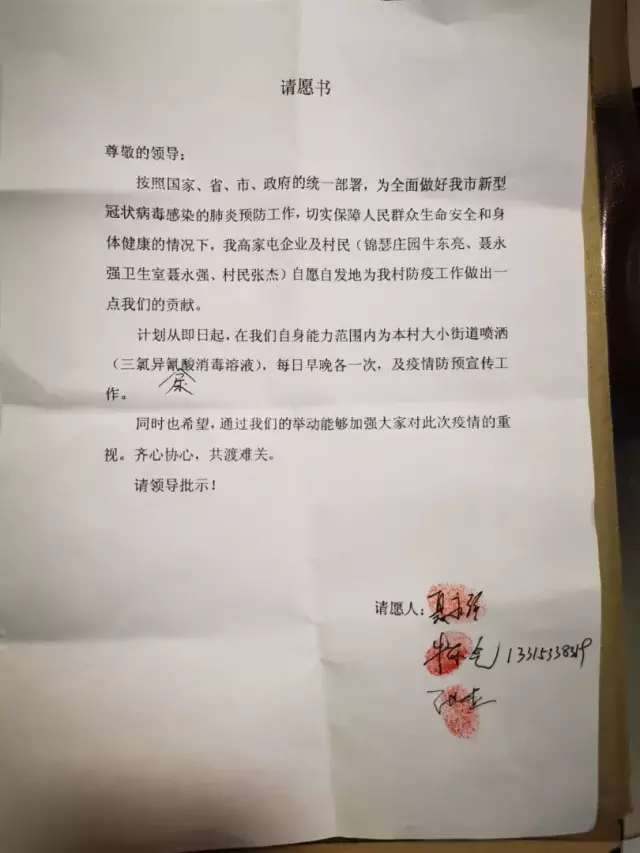 请愿书
尊敬的领导：
按照国家、省、市、政府的统一部署，为全面做好我市新型
冠状病毒感染的肺炎预防工作，切实保障人民群众生命安全和身
体健康的情况下，我高家屯企业及村民（锦瑟庄园牛东亮、聂永
强卫生室聂永强、村民张杰）自愿自发地为我村防疫工作做出一
点我们的贡献。
计划从即日起，在我们自身能力范围内为本村大小街道喷洒
（三氯异氰酸消毒溶液），每日早晚各一次，及疫情防预宣传工
尿
作。
同时也希望，通过我们的举动能够加强大家对此次疫情的重
视。齐心协心，共渡难关。
请领导批示！
请愿人：聂永强
牛东亮
张杰